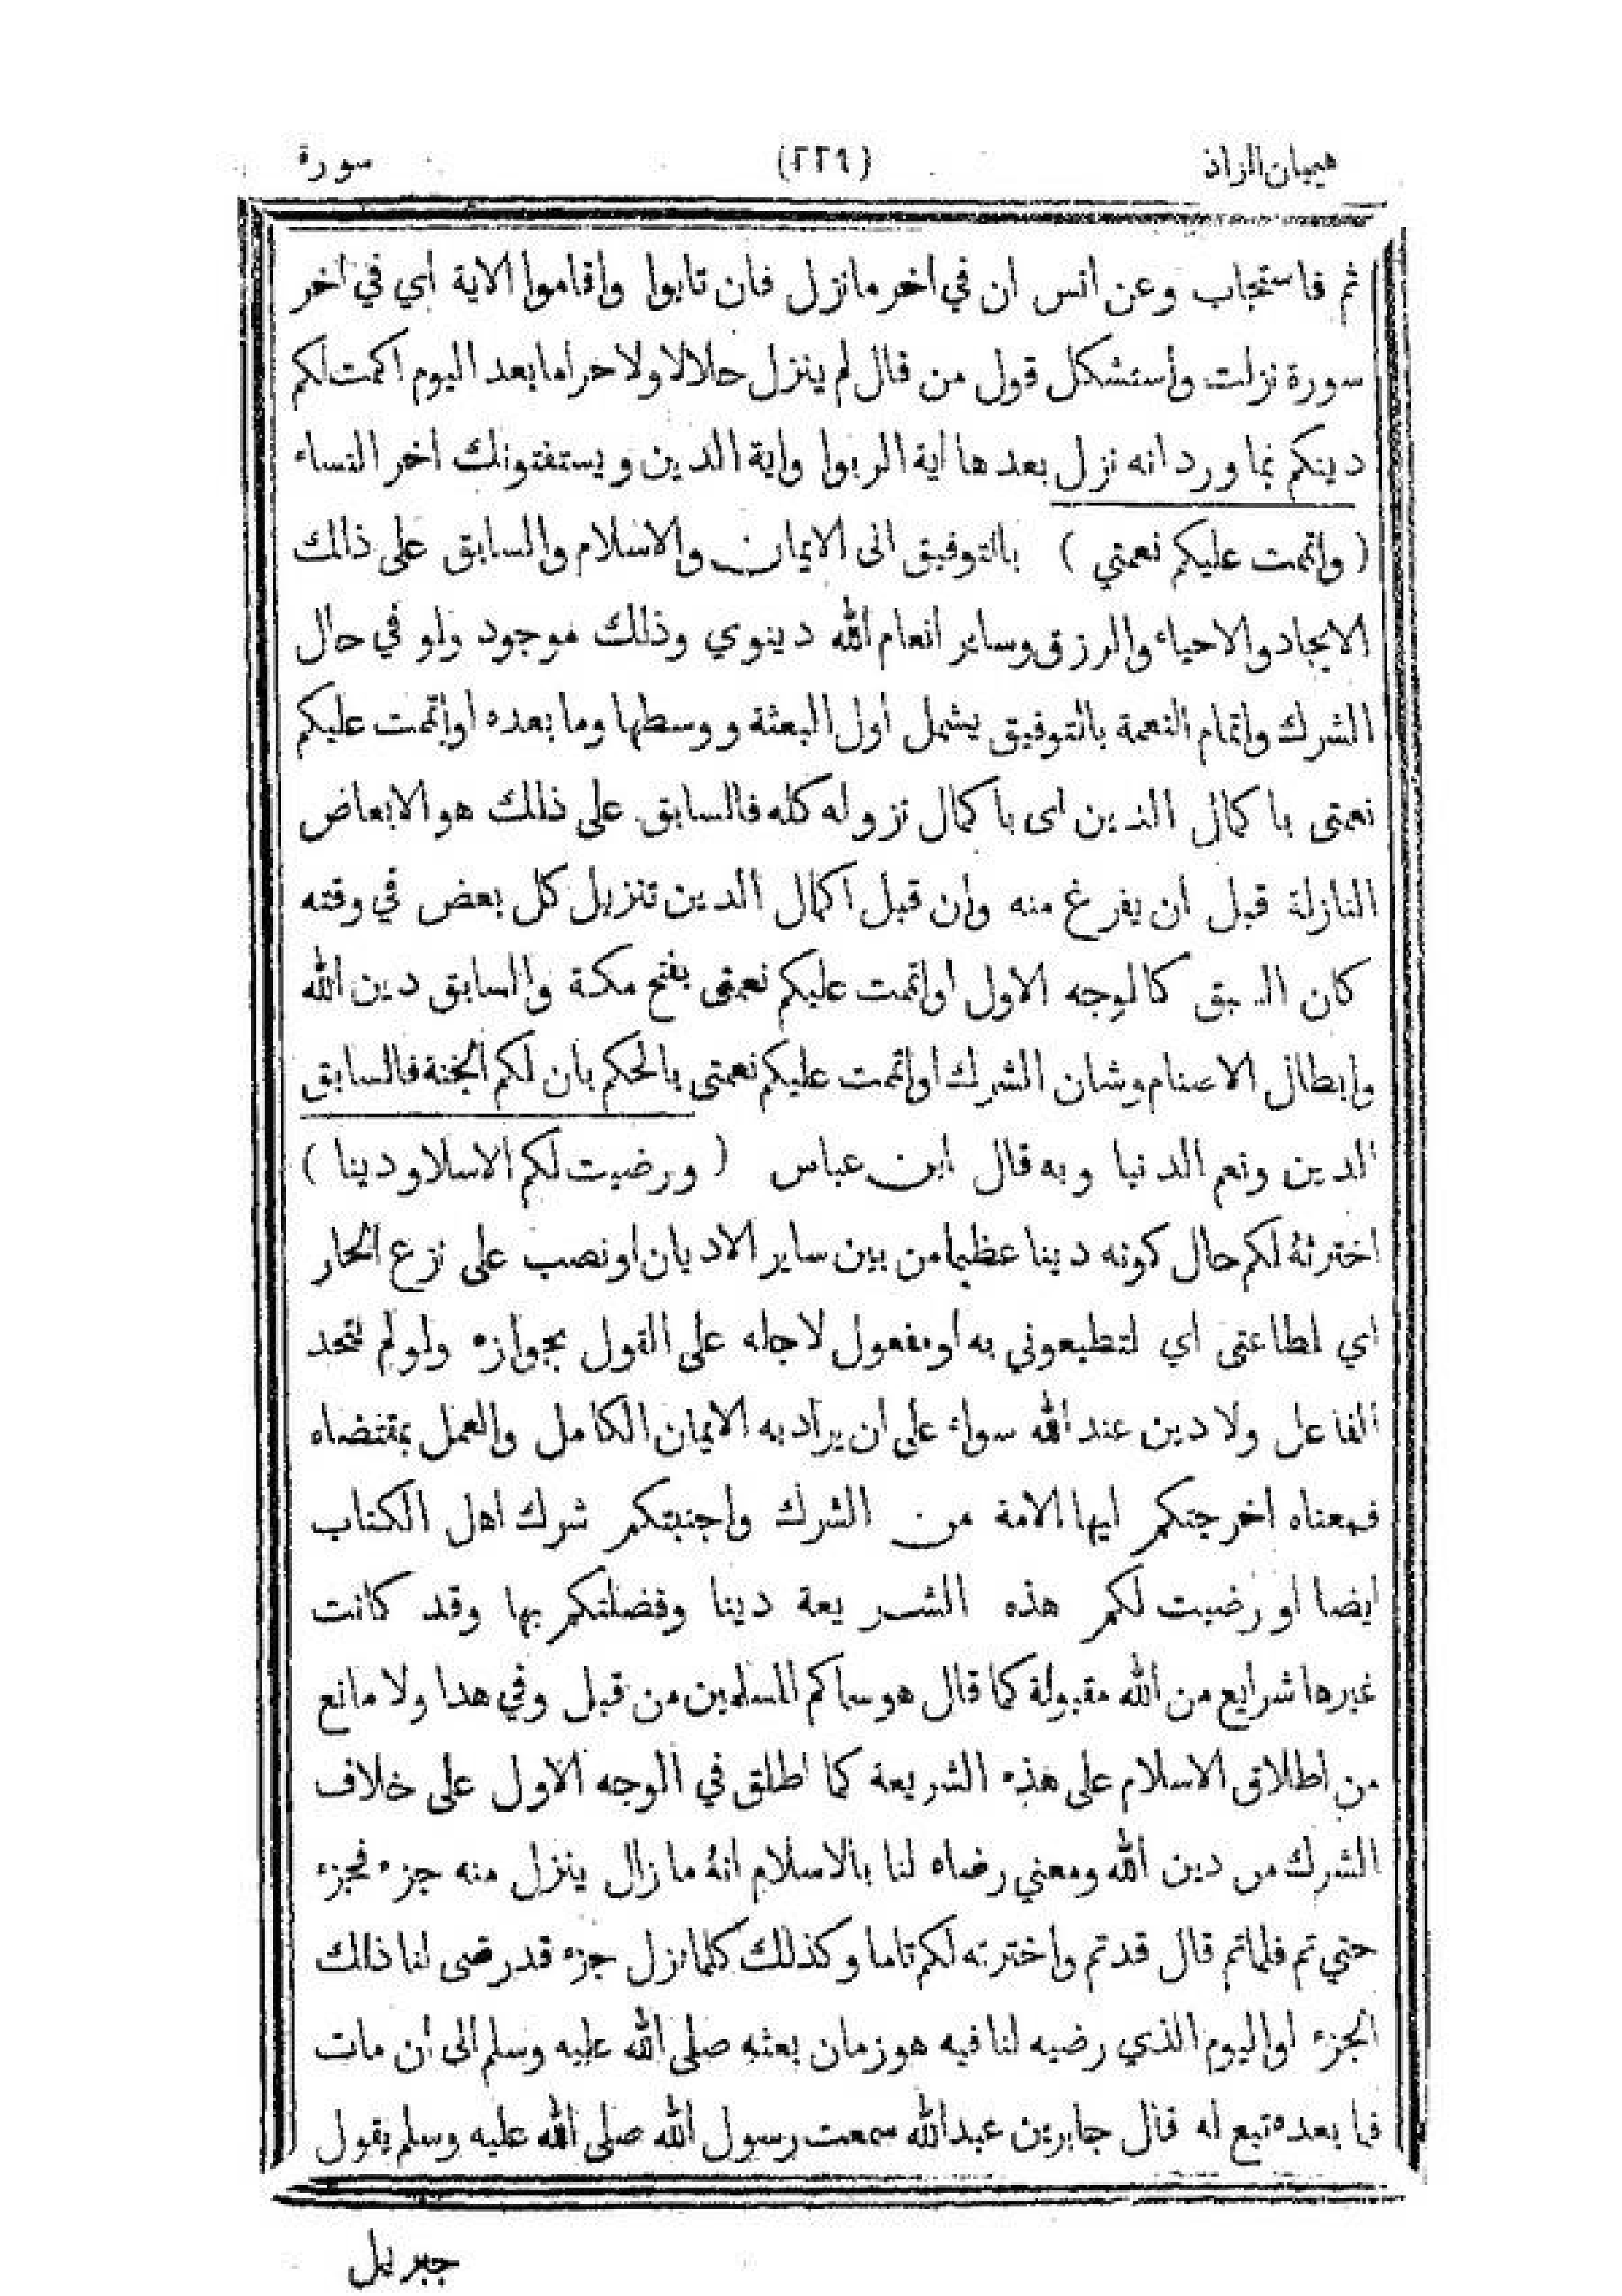 هيميان الزاد (٢٢٩) سورة
ثم فاستجاب وعن انس ان في اخر ما نزل فان تابوا واقاموا الاية اي في اخر
سورة نزلت وأستشكل قول من قال لم ينزل حلالا ولا حراما بعد اليوم اكملت لكم
دينكم بما ورد انه نزل بعدها اية الربوا واية الدين ويستفتونك اخر النساء
( واتممت عليكم نعمتي ) بالتوفيق الى الايمان والاسلام والسابق على ذلك
الايجاد والاحياء والرزق وساير انعام الله دينوي وذلك موجود ولو في حال
الشرك واتمام النعمة بالتوفيق يشمل اول البعثة ووسطها وما بعده او اتممت عليكم
نعمتى باكمال الدين اى باكمال نزوله كله فالسابق على ذلك هو الابعاض
النازلة قبل ان يفرغ منه وان قبل اكمال الدين تنزيل كل بعض في وقته
كان السبق كالوجه الاول او اتممت عليكم نعمتى بفتح مكة والسابق دين الله
وابطال الاصنام وشان الشرك او اتممت عليكم نعمتى بالحكم بان لكم الجنة فالسابق
الدين ونعم الدنيا وبه قال ابن عباس ( ورضيت لكم الاسلاو دينا )
اخترته لكم حال كونه دينا عظيما من بين ساير الاديان او نصب على نزع الخار
اي لطاعتى اي لتطيعوني به او مفعول لاجله على القول بجوازه ولو لم تتحد
الفاعل ولا دين عند الله سواء على ان يراد به الايمان الكامل والعمل بمقتضاه
فمعناه اخرجتكم ايها الامة من الشرك واجنبتكم شرك اهل الكتاب
ايضا او رضيت لكم هذه الشريعة دينا وفضلتكم بها وقد كانت
غيرها شرايع من الله مقبولة كما قال هو سماكم المسلمين من قبل وفي هدا ولا مانع
من اطلاق الاسلام على هذه الشريعة كما اطلق في الوجه الاول على خلاف
الشرك من دين الله ومعني رضاه لنا بالاسلام انه ما زال ينزل منه جزء فجزء
حتي تم فلما تم قال قد تم واخترته لكم تاما وكذلك كلما نزل جزء قد رضى لنا ذلك
الجزء او اليوم الذي رضيه لنا فيه هو زمان بعثه صلى الله عليه وسلم الى ان مات
فما بعده تبع له قال جابر بن عبد الله سمعت رسول الله صلى الله عليه وسلم يقول
جبريل